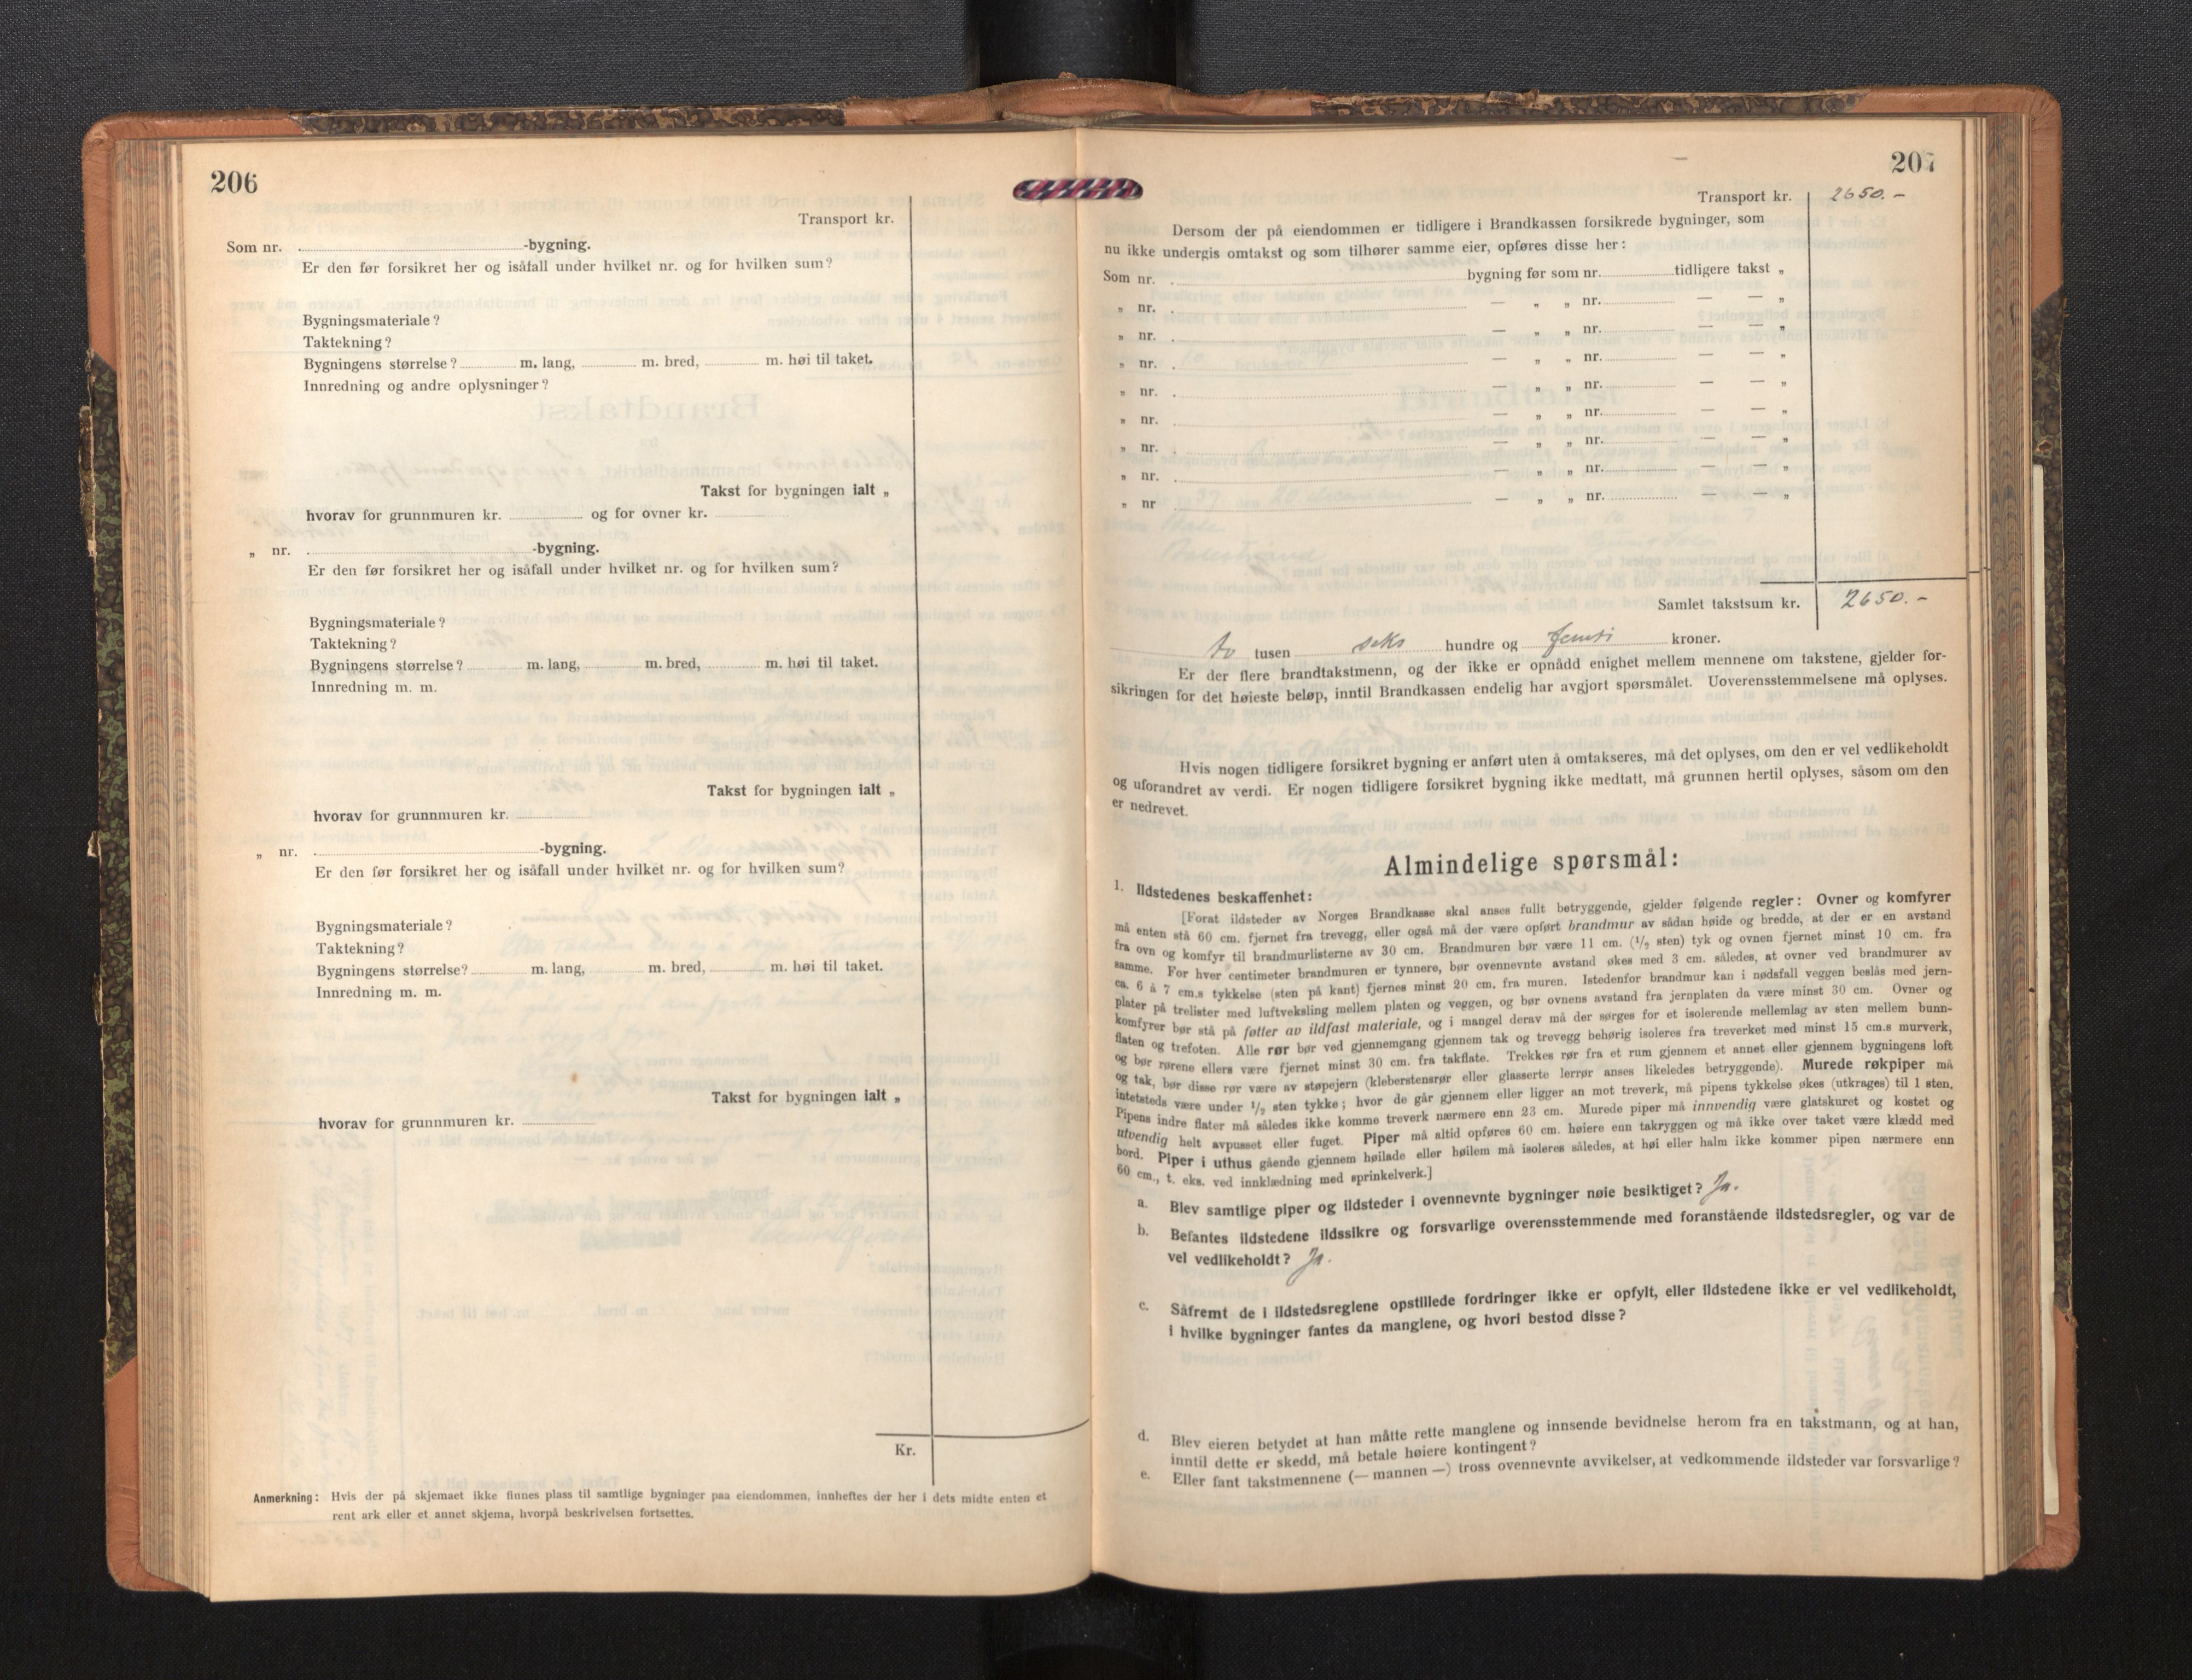 206
Transport kr.
Som nr. -bygning.
Er den før forsikret her og isåfall under hvilket nr. og for hvilken sum?
Bygningsmateriale?
Taktekning?
Bygningens størrelse? m. lang, m. bred, m. høi til taket.
Innredning og andre oplysninger?
Takst for bygningen ialt „
hvorav for grunnmuren kr. og for ovner kr.
„ nr. -bygning.
Er den før forsikret her og isåfall under hvilket nr. og for hvilken sum?
Bygningsmateriale?
Taktekning?
Bygningens størrelse? m. lang, m. bred, m. høi til taket.
Innredning m. m.
Takst for bygningen ialt „
hvorav for grunnmuren kr.
„ nr. -bygning.
Er den før forsikret her og isåfall under hvilket nr. og for hvilken sum?
Bygningsmateriale?
Taktekning?
Bygningens størrelse? m. lang, m. bred, m. høi til taket.
Innredning m. m.
Takst for bygningen ialt „
hvorav for grunnmuren kr.
Kr.
Anmerkning: Hvis der på skjemaet ikke finnes plass til samtlige bygninger paa eiendommen, innheftes der her i dets midte enten et
rent ark eller et annet skjema, hvorpå beskrivelsen fortsettes.
207
Transport kr. 2650.-
Dersom der på eiendommen er tidligere i Brandkassen forsikrede bygninger, som
nu ikke undergis omtakst og som tilhører samme eier, opføres disse her:
Som nr. bygning før som nr. tidligere takst „
„ nr. — „ „ nr. — — „
„ nr. — „ „ nr. — — „
„ nr. — „ „ nr. — — „
„ nr. — „ „ nr. — — „
„ nr. — „ „ nr. — — „
„ nr. — „ „ nr. — — „
„ nr. — „ „ nr. — — „
„ nr — „ „ nr. — — „
Samlet takstsum kr. 2650.-
to tusen seks hundre og femti kroner.
Er der flere brandtakstmenn, og der ikke er opnådd enighet mellem mennene om takstene, gjelder for-
sikringen for det høieste beløp, inntil Brandkassen endelig har avgjort spørsmålet. Uoverensstemmelsene må oplyses.
Hvis nogen tidligere forsikret bygning er anført uten å omtakseres, må det oplyses, om den er vel vedlikeholdt
og uforandret av verdi. Er nogen tidligere forsikret bygning ikke medtatt, må grunnen hertil oplyses, såsom om den
er nedrevet.
Almindelige spørsmål:
1. Ildstedenes beskaffenhet:
[Forat ildsteder av Norges Brandkasse skal anses fullt betryggende, gjelder følgende regler: Ovner og komfyrer
må enten stå 60 cm. fjernet fra trevegg, eller også må der være opført brandmur av sådan høide og bredde, at der er en avstand
fra ovn og komfyr til brandmurlisterne av 30 cm. Brandmuren bør være 11 cm. (1/2 sten) tyk og ovnen fjernet minst 10 cm. fra
samme. For hver centimeter brandmuren er tynnere, bør ovennevnte avstand økes med 3 cm. således, at ovner ved brandmurer av
ca. 6 à 7 cm.s tykkelse (sten på kant) fjernes minst 20 cm. fra muren. Istedenfor brandmur kan i nødsfall veggen beslås med jern-
plater på trelister med luftveksling mellem platen og veggen, og bør ovnens avstand fra jernplaten da være minst 30 cm. Ovner og
komfyrer bør stå på føtter av ildfast materiale, og i mangel derav må der sørges for et isolerende mellemlag av sten mellem bunn-
flaten og trefoten. Alle rør bør ved gjennemgang gjennem tak og trevegg behørig isoleres fra treverket med minst 15 cm.s murverk,
og bør rørene ellers være fjernet minst 30 cm. fra takflate. Trekkes rør fra et rum gjennem et annet eller gjennem bygningens loft
og tak, bør disse rør være av støpejern (kleberstensrør eller glasserte lerrør anses likeledes betryggende). Murede røkpiper må
intetsteds være under 1/2 sten tykke; hvor de går gjennem eller ligger an mot treverk, må pipens tykkelse økes (utkrages) til 1 sten.
Pipens indre flater må således ikke komme treverk nærmere enn 23 cm. Murede piper må innvendig være glatskuret og kostet og
utvendig helt avpusset eller fuget. Piper må altid opføres 60 cm. høiere enn takryggen og må ikke over taket være klædd med
bord. Piper i uthus gående gjennem høilade eller høilem må isoleres således, at høi eller halm ikke kommer pipen nærmere enn
60 cm., t. eks. ved innklædning med sprinkelverk.]
a. Blev samtlige piper og ildsteder i ovennevnte bygninger nøie besiktiget? Ja.
b. Befantes ildstedene ildssikre og forsvarlige overensstemmende med foranstående ildstedsregler, og var de
vel vedlikeholdt? Ja.
c. Såfremt de i ildstedsreglene opstillede fordringer ikke er opfylt, eller ildstedene ikke er vel vedlikeholdt,
i hvilke bygninger fantes da manglene, og hvori bestod disse?
d. Blev eieren betydet at han måtte rette manglene og innsende bevidnelse herom fra en takstmann, og at han,
inntil dette er skedd, må betale høiere kontingent?
e. Eller fant takstmennene (— mannen —) tross ovennevnte avvikelser, at vedkommende ildsteder var forsvarlige?